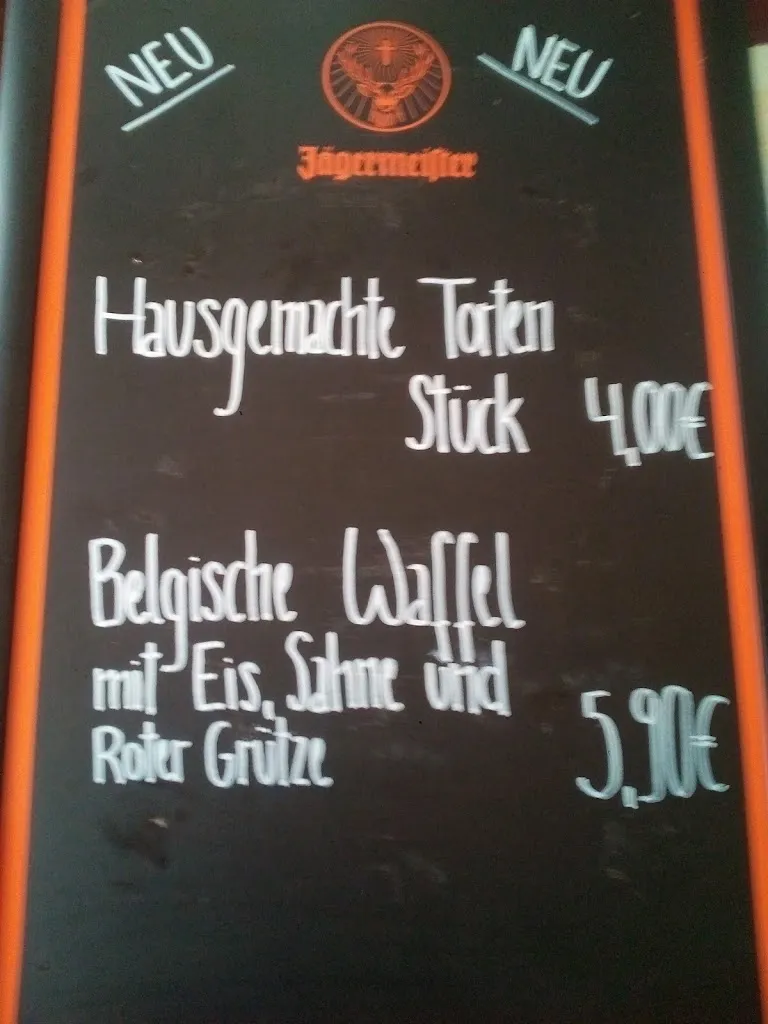 NEU
NEU
Jägermeister
Hausgemachte Torten
Stück 4,00€
Belgische Waffel
mit Eis, Sahne und
Roter Grütze 5,90€